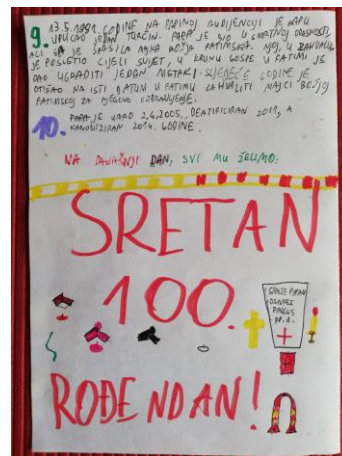 9. 13.5.1981. GODINE NA PAPINOJ AUDIJENCIJI JE PAPU
UPUCAO JEDAN TURČIN. PAPA JE BIO U SMRTNOJ OPASNOSTI,
ALI GA JE SPASILA MAJKA BOŽJA FATIMSKA. NJOJ, U ZAHVALU,
JE POSVETIO CIJELI SVIJET, U KRUNU GOSPE U FATIMI JE
DAO UGRADITI JEDAN METAK. SLJEDEĆE GODINE JE
OTIŠAO NA ISTI DATUM U FATIMU ZAHVALITI MAJCI BOŽJOJ
FATIMSKOJ ZA NJEGOVO OZDRAVLJENJE.
10. PAPA JE UMRO 2.4.2005., BEATIFICIRAN 2011., A
KANONIZIRAN 2014. GODINE.
NA DANAŠNJI DAN, SVI MU ŽELIMO:
SRETAN
100.
ROĐENDAN!